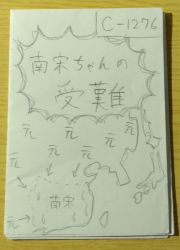 C-1276
南宋ちゃんの
受難
元
元
元
元
元
元
元
南宋